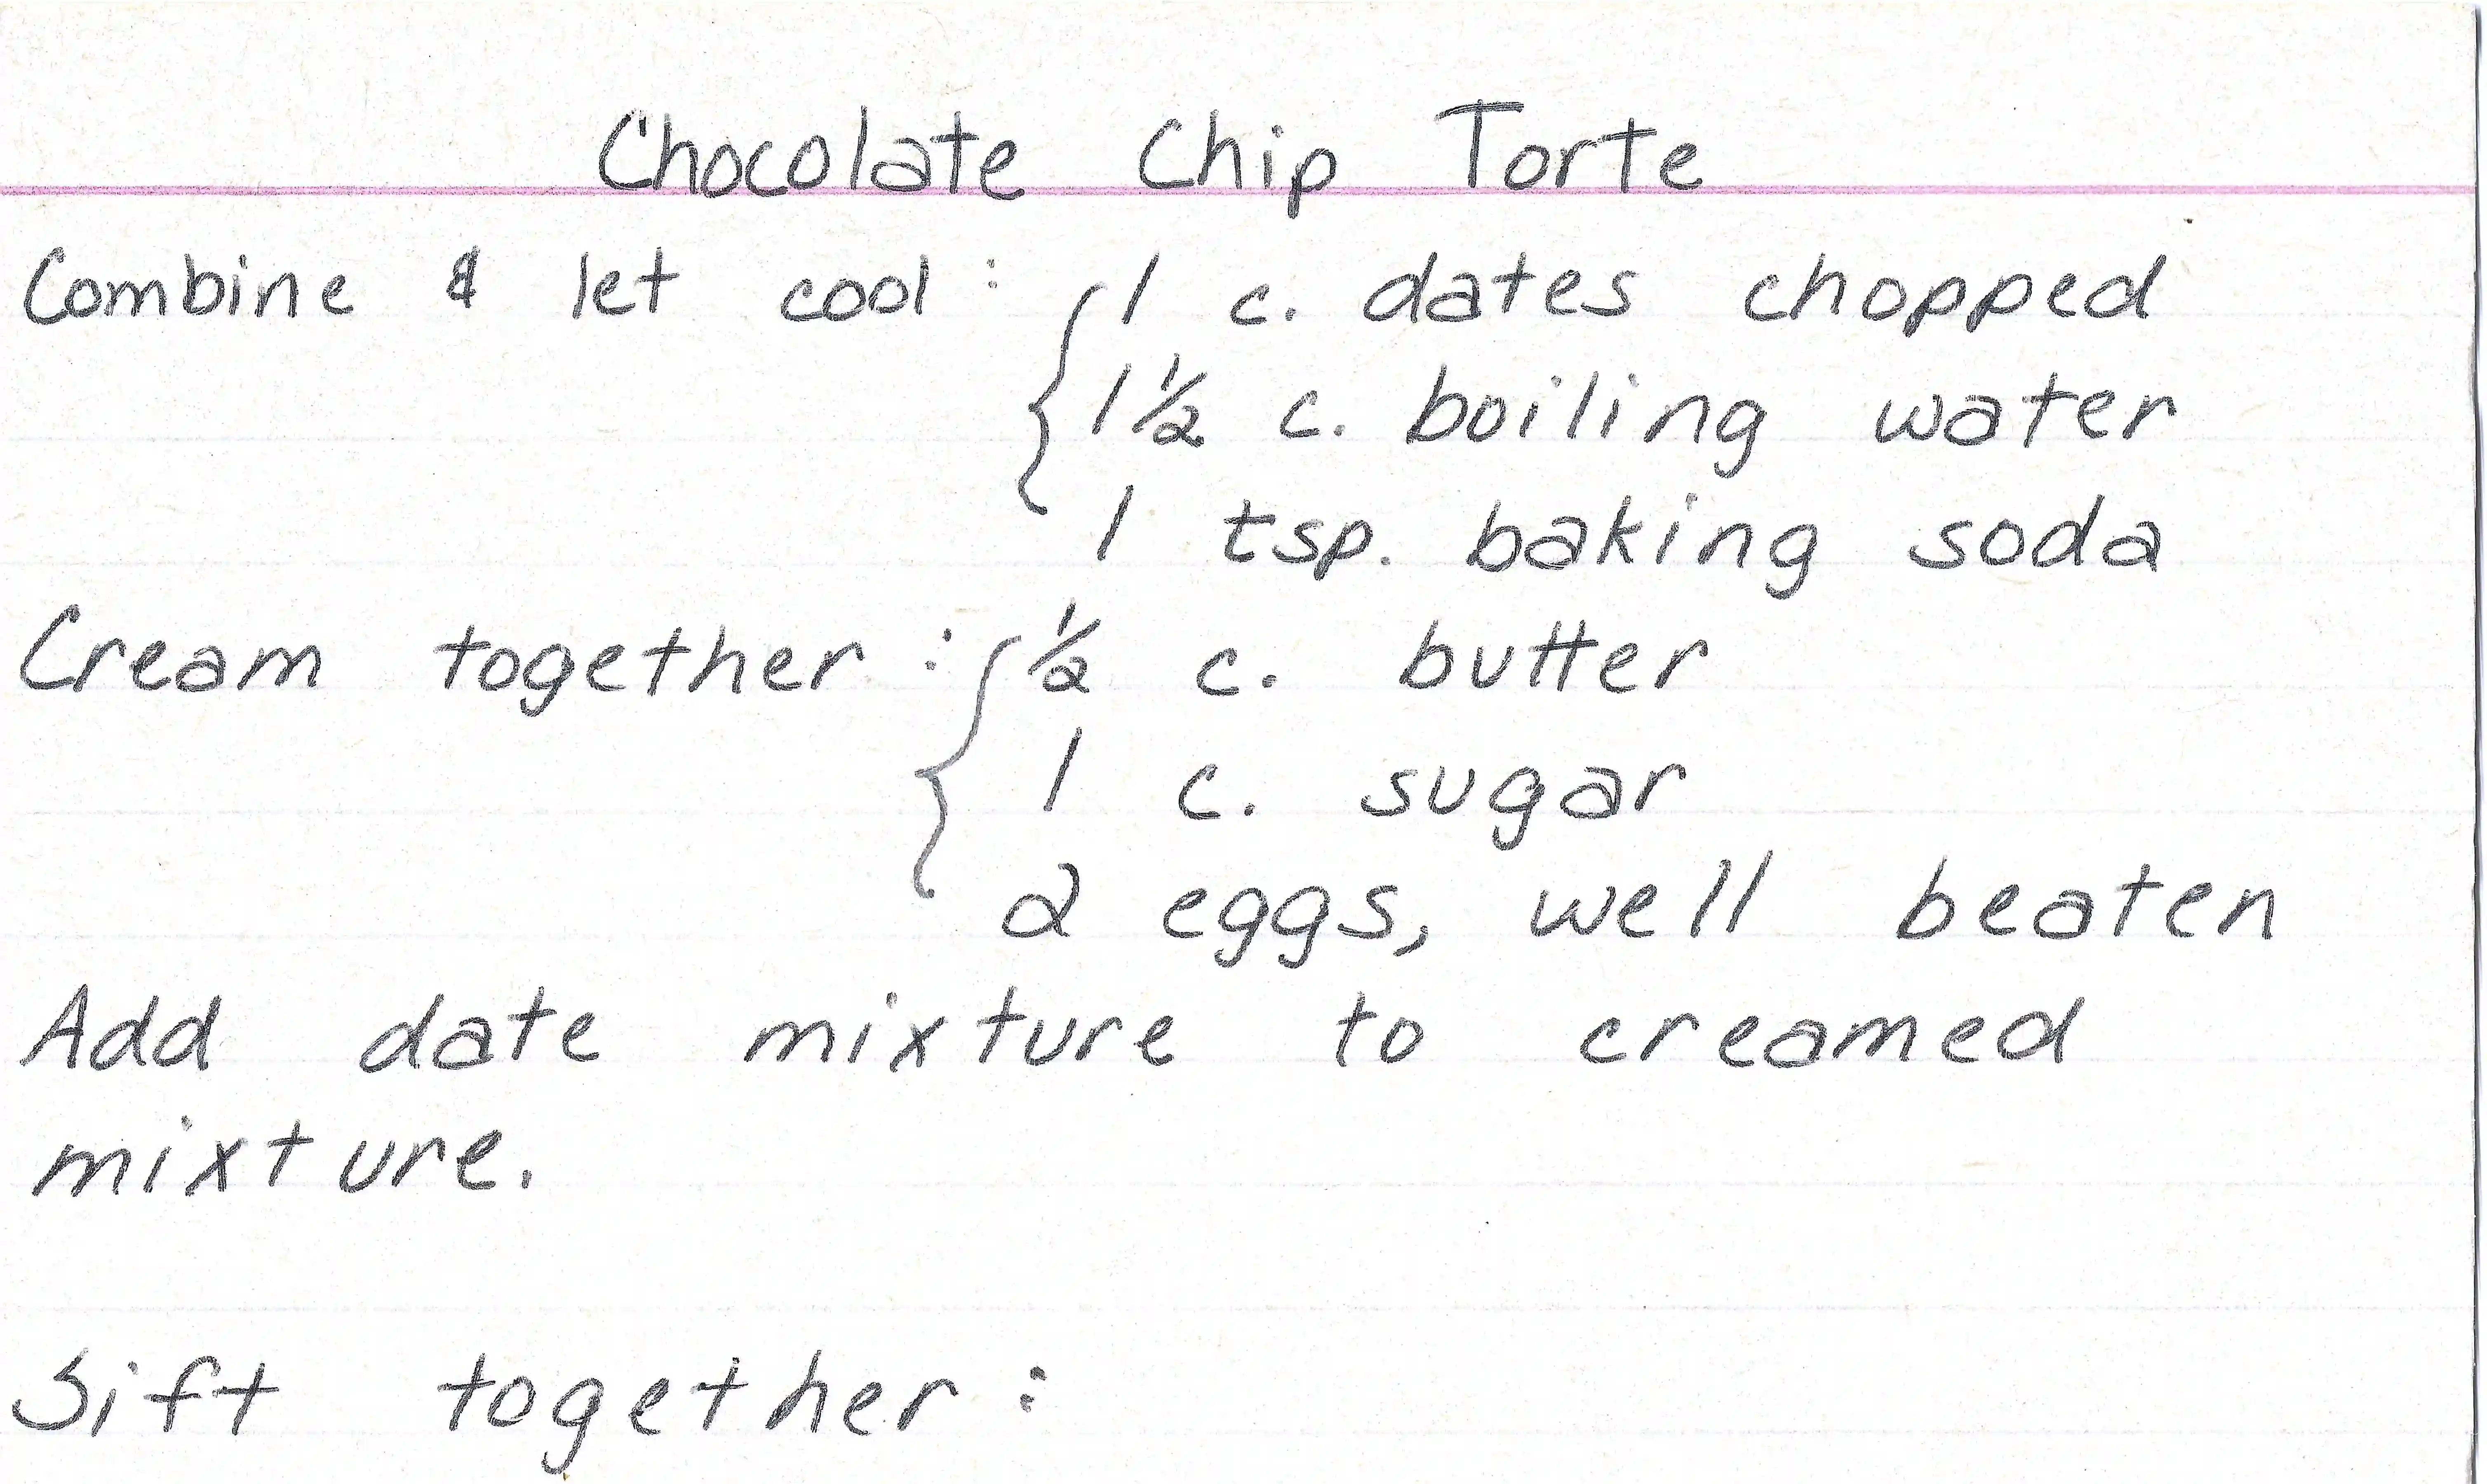 Chocolate Chip Torte
Combine & let cool: { 1 c. dates chopped
1 1/2 c. boiling water
1 tsp. baking soda
Cream together: { 1/2 c. butter
1 c. sugar
2 eggs, well beaten
Add date mixture to creamed
mixture.
Sift together: